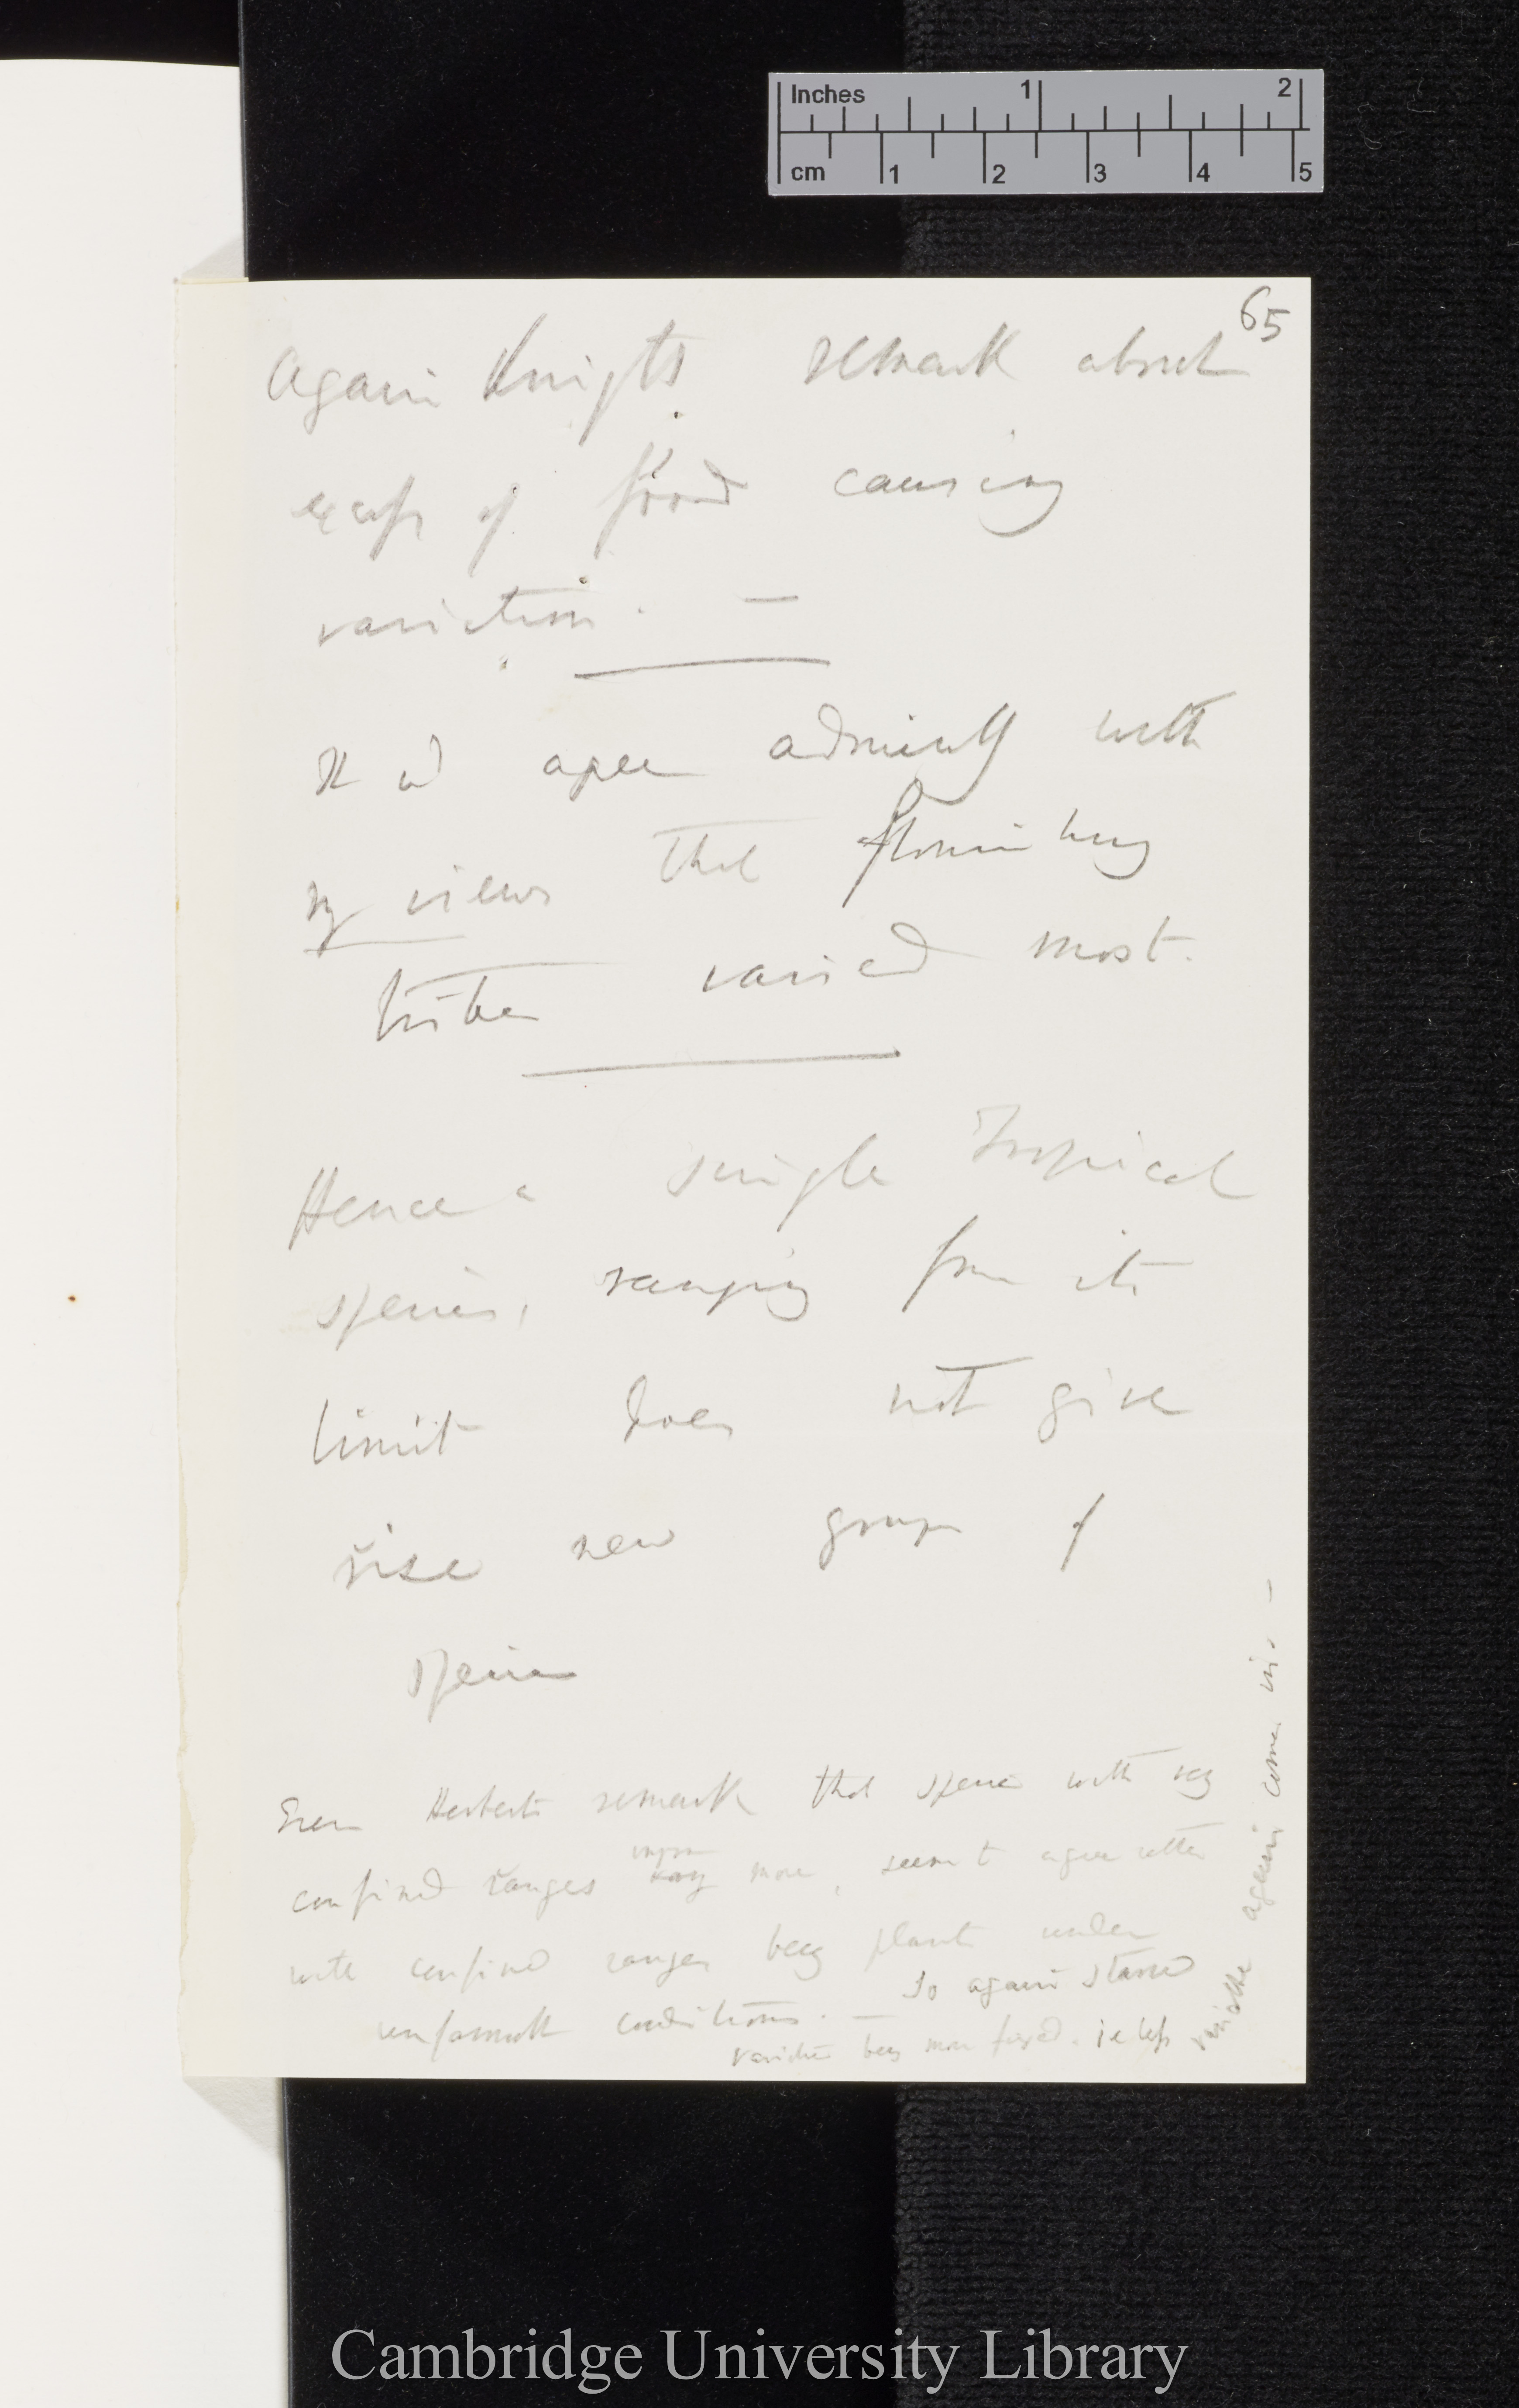 Inches 1 2
cm 1 2 3 4 5
65
Again Knights remark about
excess of food causing
variation. —
It wd agree admirably with
my views that flourishing
tribes varied most.
Hence a single Tropical
species, ranging from its
limit does not give
rise new groups of
species
Even Herberts remark that species with very
confined ranges vary more, seems to agree
with confined ranges being plants under
unfavourable conditions. — So again starved
varieties being more fixed. i e less
variable again comes in. —
Cambridge University Library